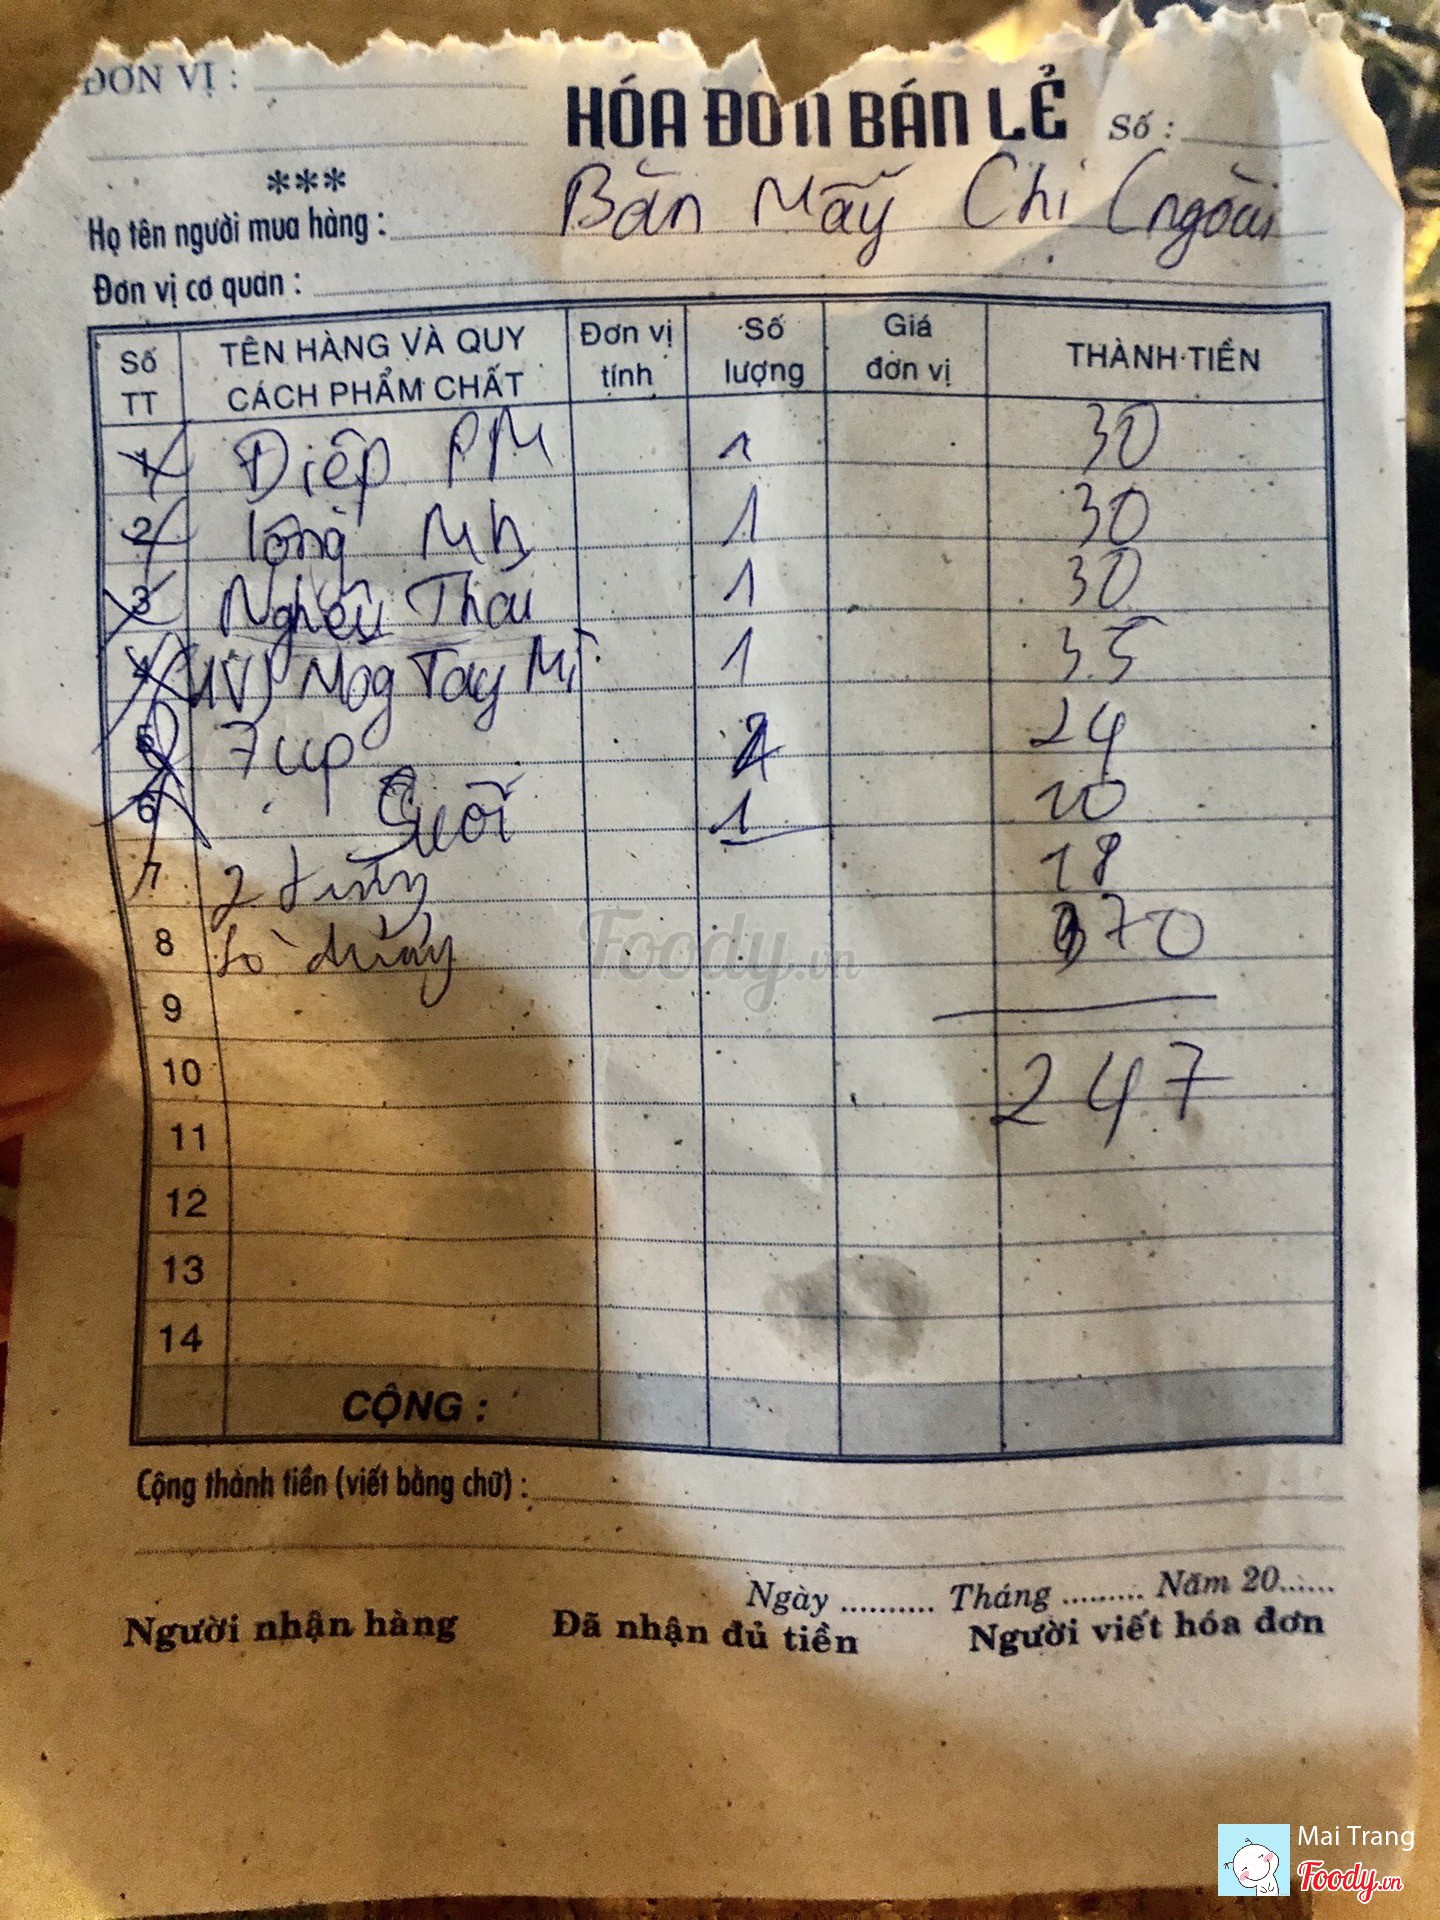 ĐƠN VỊ :
HÓA ĐƠN BÁN LẺ Số :
***
Họ tên người mua hàng : Bàn Mấy Chị (ngoài
Đơn vị cơ quan :
Số TT TÊN HÀNG VÀ QUY CÁCH PHẨM CHẤT Đơn vị tính Số lượng Giá đơn vị THÀNH TIỀN
1 Điệp PM 1 30
2 lông Mh 1 30
3 Nghêu Thái 1 30
4 Mog Tay Mỡ 1 35
5 7 up 2 24
6 Suối 1 10
7 2 18
8 Sò 70
9
10 247
11
12
13
14
CỘNG :
Cộng thành tiền (viết bằng chữ) :
Ngày .......... Tháng ......... Năm 20......
Người nhận hàng Đã nhận đủ tiền Người viết hóa đơn
Foody.vn
Mai Trang
Foody.vn